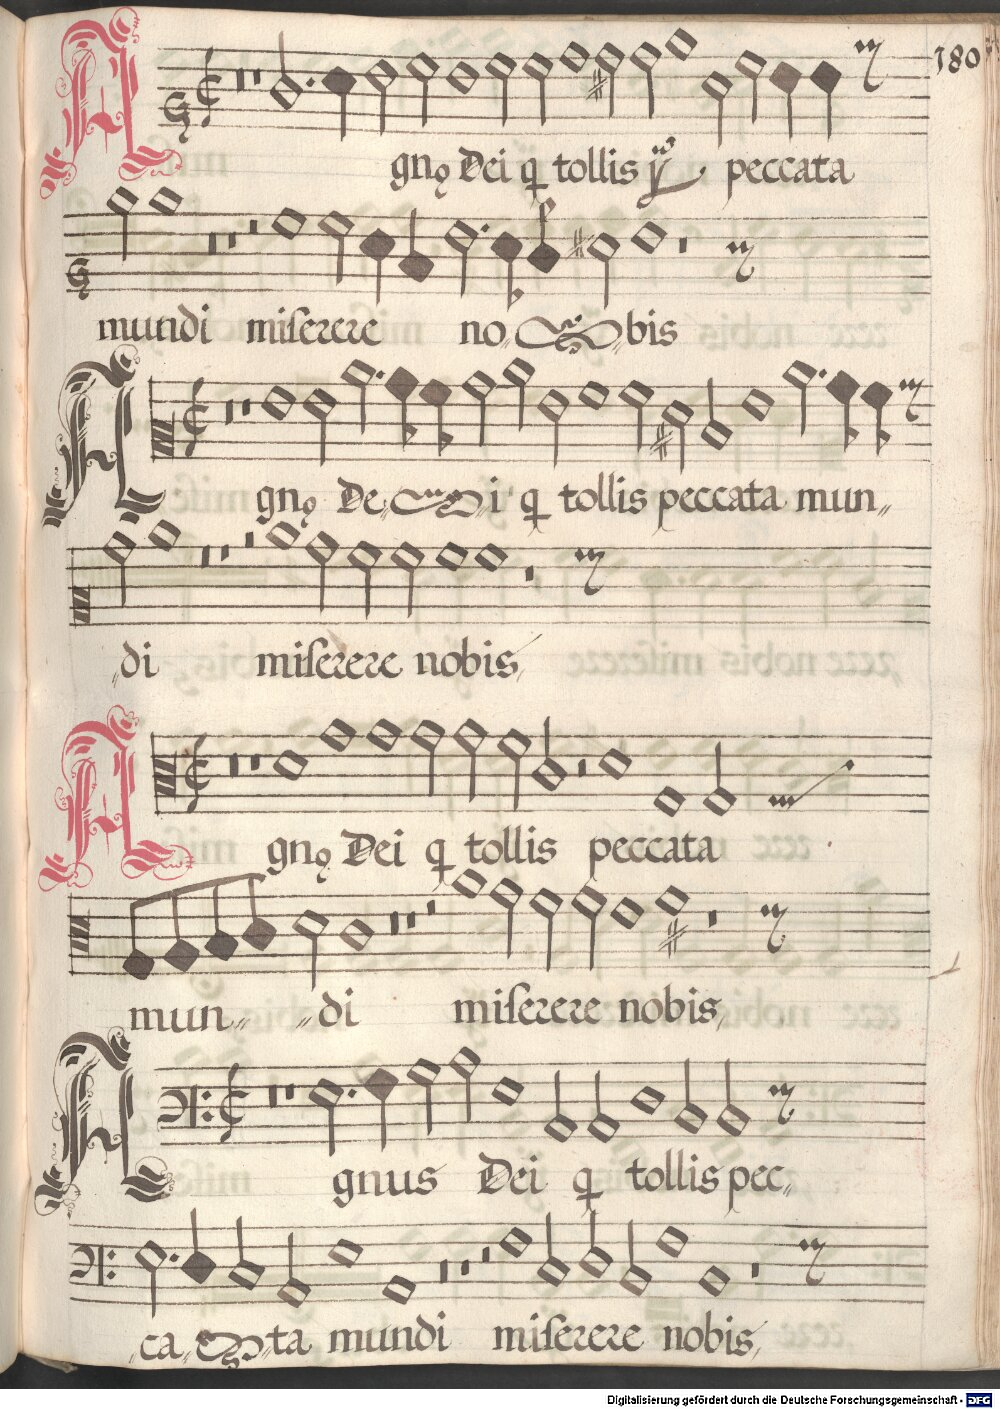 180
Agnꝯ Dei q tollis ij peccata
mundi miserere no bis
Agnꝯ De i q tollis peccata mun
di miserere nobis
Agnꝯ Dei q tollis peccata
mun di miserere nobis
Agnus Dei q tollis pec
ca ta mundi miserere nobis
Digitalisierung gefördert durch die Deutsche Forschungsgemeinschaft - DFG